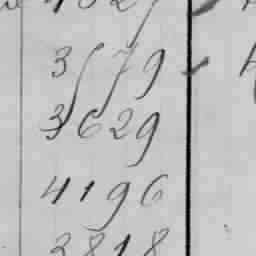 3579
3629
4196
3818